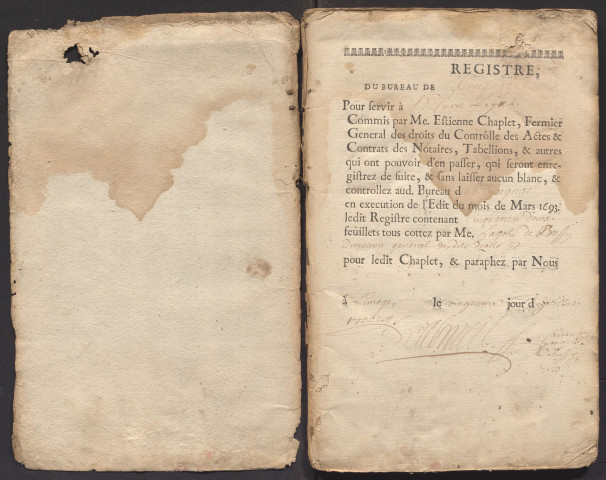 REGISTRE,
DU BUREAU DE
Pour servir à
Commis par Me. Estienne Chaplet, Fermier
General des droits du Contrôlle des Actes &
Contrats des Notaires, Tabellions, & autres
qui ont pouvoir d'en passer, qui seront enre-
gistrez de suite, & sans laisser aucun blanc, &
controllez aud. Bureau d
en execution de l'Edit du mois de Mars 1693.
ledit Registre contenant cinquante deux
feüillets tous cottez par Me. de
general desdits droits
pour ledit Chaplet, & paraphez par Nous
à Limoges le vingtieme jour d